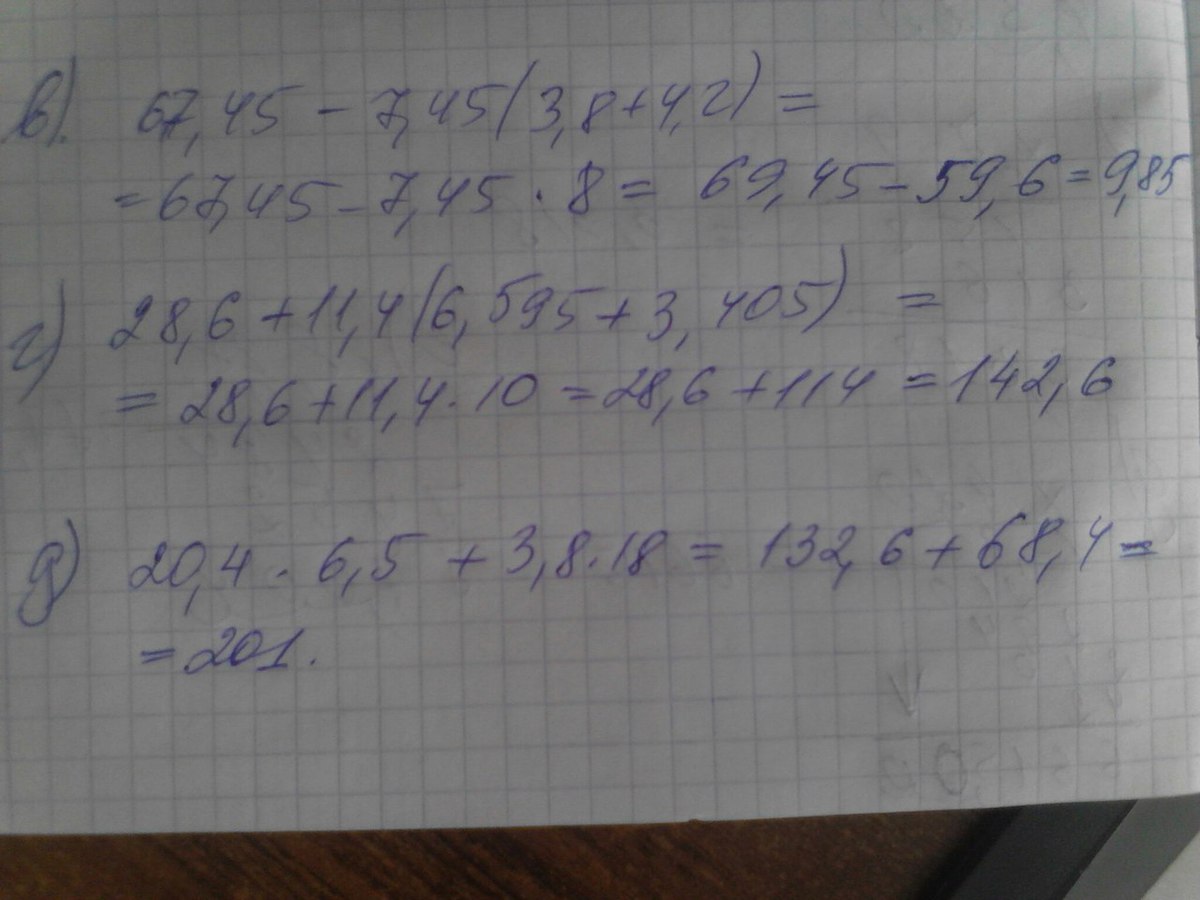 в). 67,45 - 7,45(3,8+4,2) =
= 67,45 - 7,45 · 8 = 69,45 - 59,6 = 9,85
г) 28,6 + 11,4(6,595 + 3,405) =
= 28,6 + 11,4 · 10 = 28,6 + 114 = 142,6
д) 20,4 · 6,5 + 3,8 · 18 = 132,6 + 68,4 =
= 201.